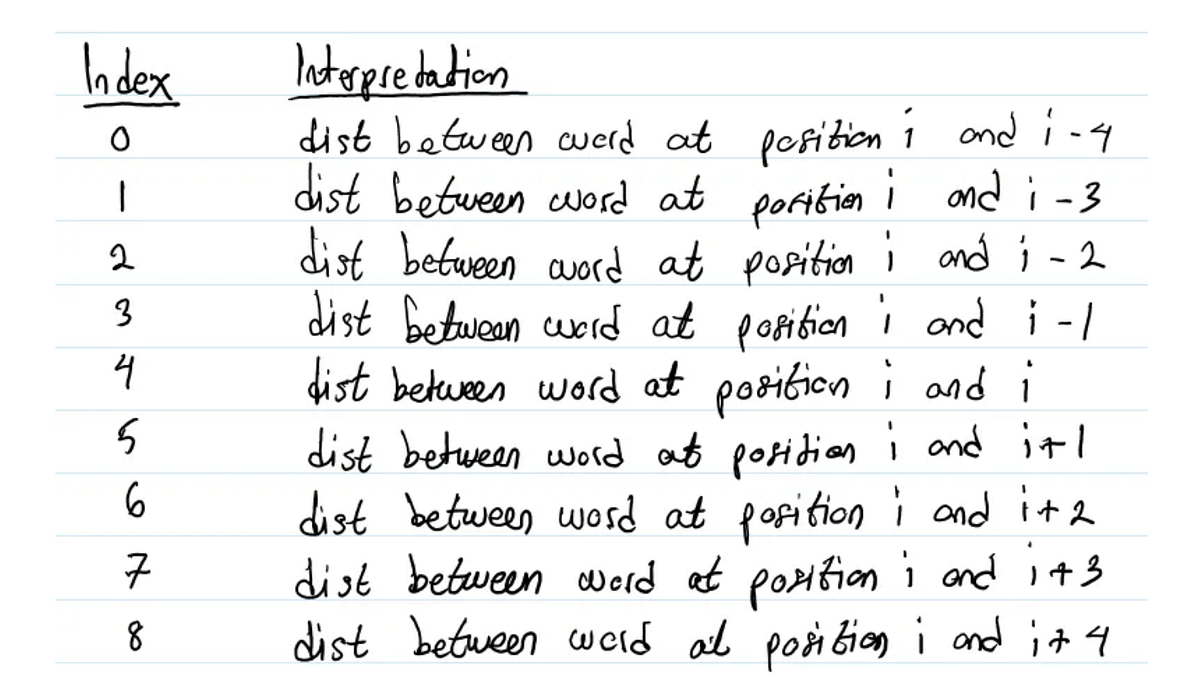 Index Interpretation
0 dist between word at position i and i-4
1 dist between word at position i and i-3
2 dist between word at position i and i-2
3 dist between word at position i and i-1
4 dist between word at position i and i
5 dist between word at position i and i+1
6 dist between word at position i and i+2
7 dist between word at position i and i+3
8 dist between word at position i and i+4